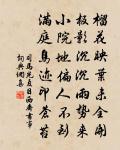 榴花映葉未全開
槐影沉沉雨勢來
小院地偏人不到
滿庭鳥跡印蒼苔
司馬光夏日西齋書事
詞典網集